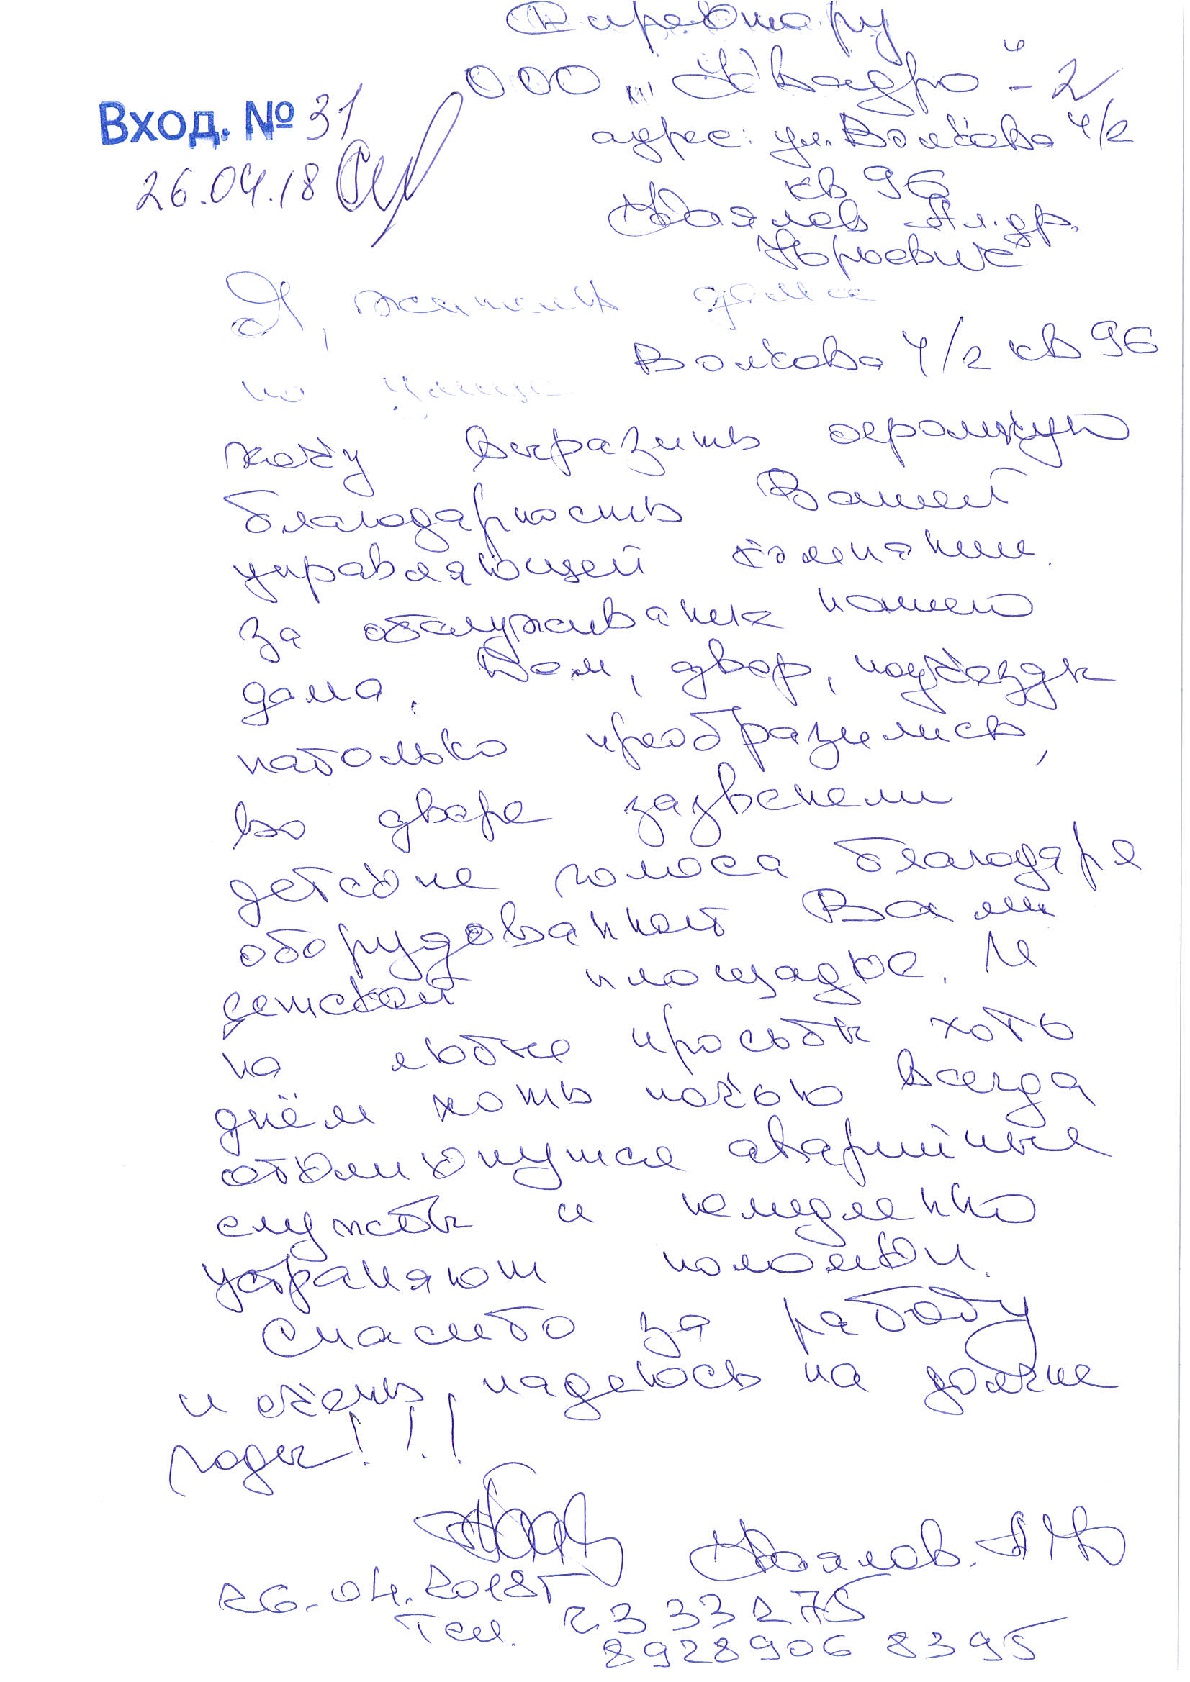 Директору
ООО "Квадро"-2
Вход. № 31
адрес: ул. Волкова 4/2
26.04.18
кв 96
Ал-др.
Юрьевич
Я, житель дома
Волкова 4/2 кв 96
хочу выразить огромную
благодарность Вашей
управляющей компании
за обслуживание нашего
дома. Дом, двор, подъезды
настолько преобразились,
во дворе зазвенели
детские голоса благодаря
оборудованной Вами
детской площадке. И
на любые просьбы хоть
днём хоть ночью всегда
откликнутся аварийные
службы и немедленно
устраняют поломки.
Спасибо за работу
и очень надеюсь на долгие
годы!!!
26.04.2018г
Тел. 2333275
89289068395